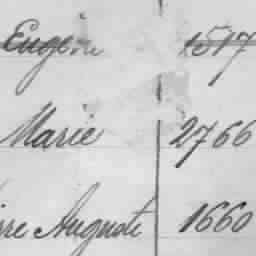 Eugénie 1517
Marie 2766
rre Auguste 1660